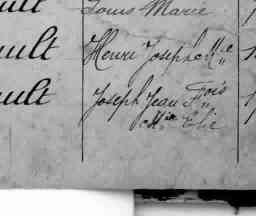 ult Louis Marie
ault Henri Joseph Mie
ault Joseph Jean Fois
Mie Elie